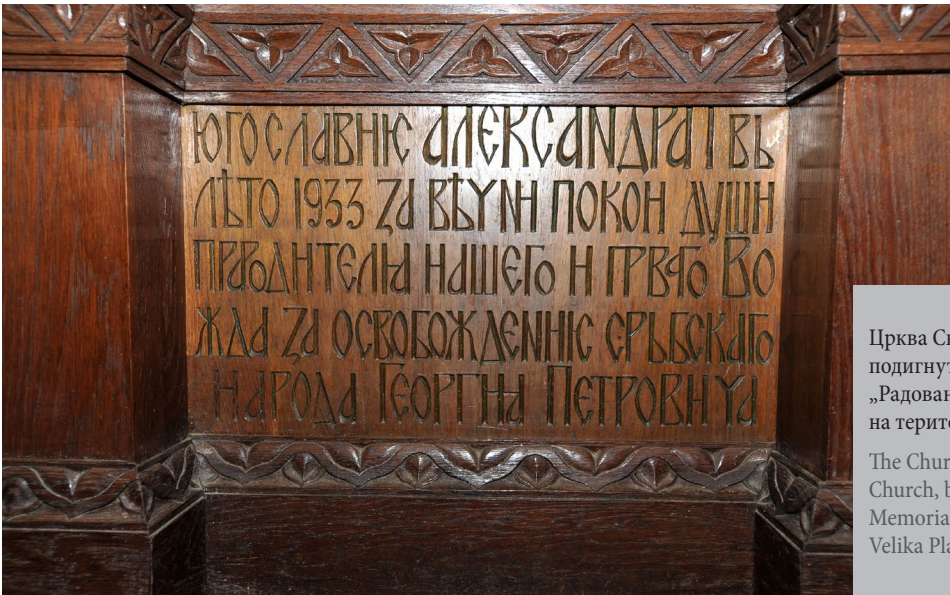 ЮГОСЛАВИѤ АЛЕКСАНДРА I ВЬ
ЛѢТО 1933 ZА ВѢЧНИ ПОКОИ ДУШИ
ПРАРОДИТЕЛꙖ НАШЕГО И ПРВАГО ВО
ЖДА ZА ОСВОБОЖДЕНИѤ СРЬБСКАГО
НАРОДА ГЕОРГИꙖ ПЕТРОВИЧА
Црква Св
подигнут
„Радован
на терито
The Chur
Church, b
Memoria
Velika Pla